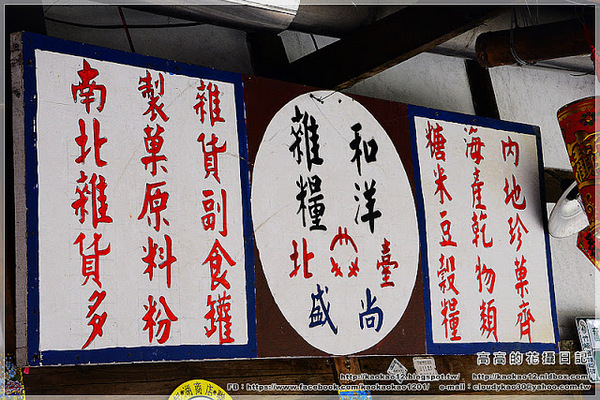 內地珍菓齊
海產乾物類
糖米豆穀糧
和洋
雜糧
臺北
尚盛
雜貨副食罐
製菓原料粉
南北雜貨多
高高的花攝日記
http://kaokao12.blogspot.tw/ http://kaokao12.nidbox.com/
FB：https://www.facebook.com/kaokaokao1201/ e-mail：cloudykao30@yahoo.com.tw